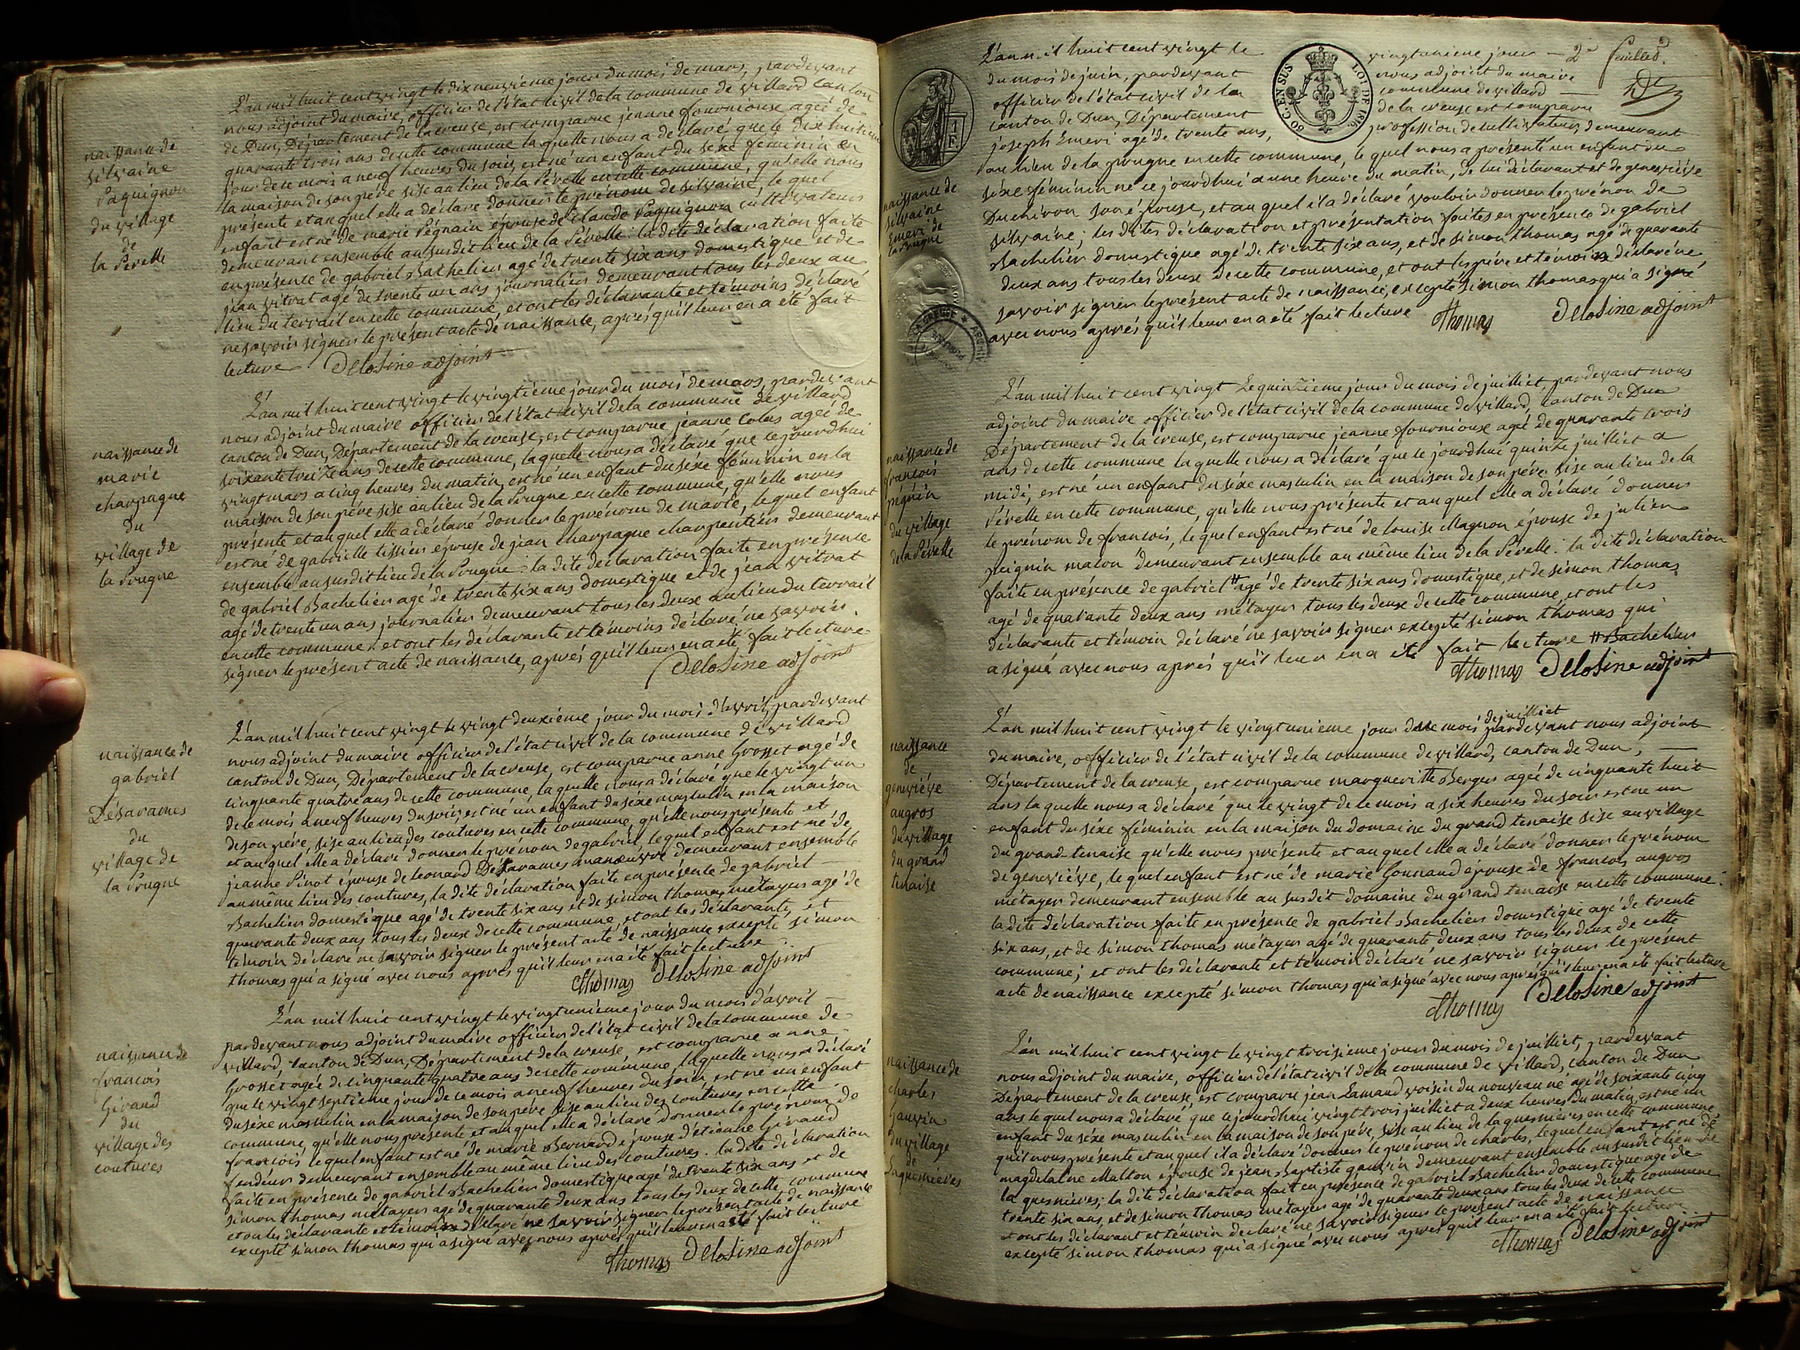 naissance de
silvaine
Paquignon
du village
de
la Pérelle
L'an mil huit cent vingt le dix neuvième jour du mois de mars, pardevant
nous adjoint du maire, officier de l'état civil de la commune de villard canton
de Dun, Département de la creuse, est comparue jeanne fourniouse agée de
quarante trois ans de cette commune laquelle nous a déclaré que le dix huitième
jour de ce mois a neuf heures du soir, est né un enfant du sexe féminin en
la maison de son père sise au lieu de la Pérelle en cette commune, qu'elle nous
présente et auquel elle a déclaré donner le prénom de silvaine, lequel
enfant est né de marie Pégnain épouse de Claude Paquignon cultivateur
demeurant ensemble au susdit lieu de la Pérelle : la dite déclaration faite
en présence de gabriel Bachelier agé de trente six ans domestique et de
jean vitrat agé de trente un ans journalier demeurant tous les deux au
lieu du terrail en cette commune, et ont les déclarante et témoins déclaré
ne savoir signer le présent acte de naissance, après qu'il leur en a été fait
lecture Delosine adjoint
naissance de
marie
charpagne
du
village de
la Prugne
L'an mil huit cent vingt le vingtième jour du mois de mars, pardevant
nous adjoint du maire officier de l'état civil de la commune de villard
canton de Dun, Département de la creuse, est comparue jeanne Colas agée de
soixante treize ans de cette commune, laquelle nous a déclaré que ce jourdhui
vingt mars a cinq heures du matin, est né un enfant du séxe féminin en la
maison de son père sise au lieu de la Prugne en cette commune, qu'elle nous
présente et auquel elle a déclaré donner le prénom de marie, lequel enfant
est né de gabrielle tissier épouse de jean charpagne charpentier demeurant
ensemble au susdit lieu de la Prugne : la dite déclaration faite en présence
de gabriel Bachelier agé de trente six ans domestique et de jean vitrat
agé de trente un ans journalier demeurant tous les deux au lieu du terrail
en cette commune : et ont les déclarante et témoins déclaré ne savoir
signer le présent acte de naissance, après qu'il leur en a été fait lecture
Delosine adjoint
naissance de
gabriel
Désarames
du
village de
la Prugne
L'an mil huit cent vingt le vingt deuxième jour du mois d'avril, pardevant
nous adjoint du maire officier de l'état civil de la commune de villard
canton de Dun, Département de la creuse, est comparue anne Grosset agé de
cinquante quatre ans de cette commune, laquelle nous a déclaré que le vingt un
de ce mois a neuf heures du soir, est né un enfant du séxe masculin en la maison
de son père, sise au lieu des coutures en cette commune, qu'elle nous présente et
et auquel elle a déclaré donner le prénom de gabriel, lequel enfant est né de
jeanne Pinot épouse de leonard Désarames manœuvre demeurant ensemble
au même lieu des coutures, la dite déclaration faite en présence de gabriel
Bachelier domestique agé de trente six ans et de simon thomas, métayer agé de
quarante deux ans tous les deux de cette commune, et ont les déclarante, et
témoin déclaré ne savoir signer le présent acte de naissance excepté simon
thomas qui a signé avec nous après qu'il leur en a été fait lecture
Thomas Delosine adjoint
naissance de
francois
Giraud
du
village des
coutures
L'an mil huit cent vingt le vingt unieme jour du mois d'avril
pardevant nous adjoint du maire officier de l'état civil de la commune de
villard, canton de Dun, Département de la creuse, est comparue anne
Grosset agée de cinquante quatre ans de cette commune, laquelle nous a déclaré
que le vingt septième jour de ce mois a neuf heures du soir est né un enfant
du séxe masculin en la maison de son père, sise au lieu des coutures en cette
commune, qu'elle nous présente et auquel elle a déclaré donner le prénom de
francois lequel enfant est né de marie Bernard épouse d'étienne Giraud
fendeur demeurant ensemble au même lieu des coutures. la dite déclaration
faite en présence de gabriel Bachelier domestique agé de trente six ans et de
simon thomas métayer agé de quarante deux ans tous les deux de cette commune
et ont les déclarante et témoin déclaré ne savoir signer le présent acte de naissance
excepté simon thomas qui a signé avec nous après qu'il leur en a été fait lecture
Thomas Delosine adjoint
2e feuillet
60 C. EN SUS
LOI DE 1816
naissance de
silvaine
Émeri de
la Prugne
L'an mil huit cent vingt le vingt unieme jour
du mois de juin, pardevant nous adjoint du maire
officier de l'état civil de la commune de villard
canton de Dun, Département de la creuse est comparu
joseph Émeri agé de trente ans, profession de cultivateur demeurant
au lieu de la prugne en cette commune, lequel nous a présenté un enfant du
séxe féminin né ce jourdhui a une heure du matin, de lui déclarant et de geneviève
Duchiron son épouse, et auquel il a déclaré vouloir donner le prénom de
silvaine ; les dites déclaration et présentation faites en présence de gabriel
Bachelier domestique agé de trente six ans, et de simon thomas agé de quarante
deux ans tous les deux de cette commune, et ont les père et témoins déclaré ne
savoir signer le présent acte de naissance, excepté simon thomas qui a signé
avec nous après qu'il leur en a été fait lecture Thomas Delosine adjoint
naissance de
francois
péignin
du village
de la Pérelle
L'an mil huit cent vingt le quinzieme jour du mois de juilliet pardevant nous
adjoint du maire officier de l'état civil de la commune de villard, canton de Dun
Département de la creuse, est comparue jeanne fourniouse agé de quarante trois
ans de cette commune laquelle nous a déclaré que le jourdhui quinze juilliet a
midi, est né un enfant du sexe masculin en la maison de son père sise au lieu de la
Pérelle en cette commune, qu'elle nous présente et auquel elle a déclaré donner
le prénom de francois, lequel enfant est né de louise Magnon épouse de julien
peignin macon demeurant ensemble au même lieu de la Pérelle : la dite déclaration
faite en présence de gabriel # agé de trente six ans domestique, et de simon thomas
agé de quarante deux ans métayer tous les deux de cette commune, et ont les
déclarante et témoin déclaré ne savoir signer excepté simon thomas qui
a signé avec nous après qu'il leur en a été fait lecture # Bachelier
Thomas Delosine adjoint
naissance
de
geneviève
augros
du village
du grand
tenaise
L'an mil huit cent vingt le vingt unieme jour du mois de juilliet pardevant nous adjoint
du maire, officier de l'état civil de la commune de villard, canton de Dun,
Département de la creuse, est comparue margueritte Berger agée de cinquante huit
ans laquelle nous a déclaré que le vingt de ce mois a six heures du soir est né un
enfant du séxe féminin en la maison du domaine du grand tenaise sise au village
du grand tenaise qu'elle nous présente et auquel elle a déclaré donner le prénom
de geneviève, lequel enfant est né de marie Gonnaud épouse de francois augros
métayer demeurant ensemble au susdit domaine du grand tenaise en cette commune :
la dite déclaration faite en présence de gabriel Bachelier domestique agé de trente
six ans, et de simon thomas métayer agé de quarante deux ans tous les deux de cette
commune ; et ont les déclarante et témoin déclaré ne savoir signer le présent
acte de naissance excepté simon thomas qui a signé avec nous après qu'il leur en a été fait lecture
Thomas Delosine adjoint
naissance de
charles
Gauvin
du village
de
laquesnières
L'an mil huit cent vingt le vingt troisieme jour du mois de juilliet, pardevant
nous adjoint du maire, officier de l'état civil de la commune de villard, canton de Dun
Département de la creuse, est comparu jean Lamaud voisin du nouveau né agé de soixante cinq
ans lequel nous a déclaré que ce jourdhui vingt trois juilliet a deux heures du matin, est né un
enfant du séxe masculin en la maison de son père, sise au lieu de laquesnières en cette commune
qu'il nous présente et auquel il a déclaré donner le prénom de charles, lequel enfant est né de
magdelaine Malton épouse de jean Baptiste gauvin demeurant ensemble au susdit lieu de
laquesnières ; la dite déclaration fait en présence de gabriel Bachelier domestique agé de
trente six ans, et de simon thomas métayer agé de quarante deux ans tous les deux de cette commune
et ont les déclarant et témoin déclaré ne savoir signer le présent acte de naissance
excepté simon thomas qui a signé avec nous après qu'il leur en a été fait lecture
Thomas Delosine adjoint